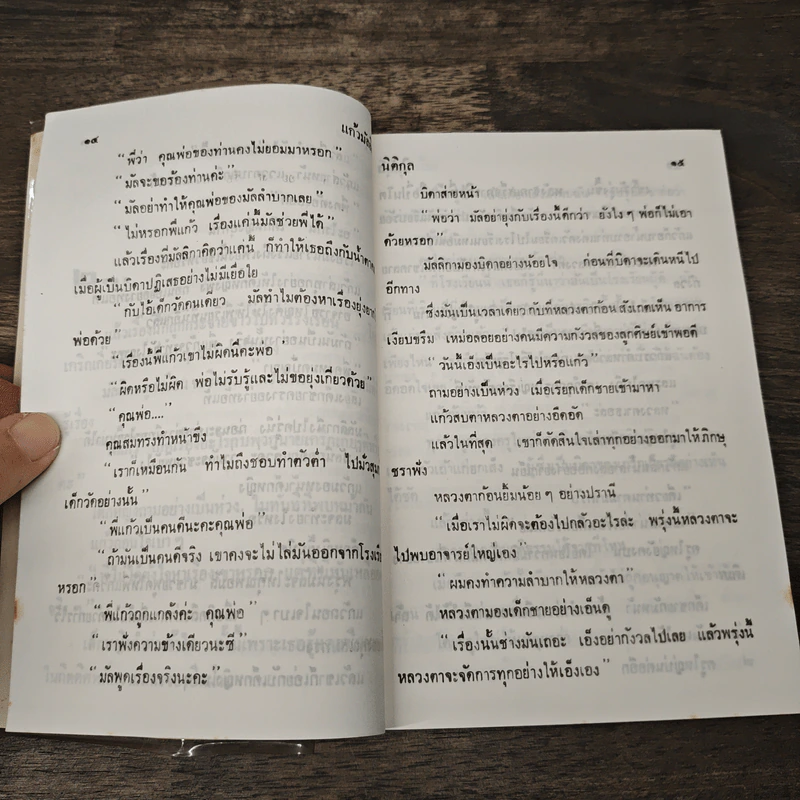 ๑๔
แก้วมัล
"พี่ว่า คุณพ่อของท่านคงไม่ยอมมาหรอก"
"มัลจะขอร้องท่านค่ะ"
"มัลอย่าทำให้คุณพ่อของมัลลำบากเลย"
"ไม่หรอกพี่แก้ว เรื่องแค่นี้มัลช่วยพี่ได้"
แล้วเรื่องที่มัลลิกาคิดว่าแค่นี้ ก็ทำให้เธอถึงกับน้ำตา
เมื่อผู้เป็นบิดาปฏิเสธอย่างไม่มีเยื่อใย
"กับไอ้เด็กวัดคนเดียว มัลทำไมต้องหาเรื่องยุ่งยาก
พ่อด้วย"
"เรื่องนี้พี่แก้วเขาไม่ผิดนี่คะพ่อ"
"ผิดหรือไม่ผิด พ่อไม่รับรู้และไม่ขอยุ่งเกี่ยวด้วย"
"คุณพ่อ...."
คุณสมทรงทำหน้าขึง
"เราก็เหมือนกัน ทำไมถึงชอบทำตัวต่ำ ไปมั่วสุม
เด็กวัดอย่างนั้น"
"พี่แก้วเป็นคนดีนะคะคุณพ่อ"
"ถ้ามันเป็นคนดีจริง เขาคงจะไม่ไล่มันออกจากโรงเรีย
หรอก"
"พี่แก้วถูกแกล้งค่ะ คุณพ่อ"
"เราฟังความข้างเดียวนะซี"
"มัลพูดเรื่องจริงนะคะ"
นิติกุล
๑๕
บิดาส่ายหน้า
"พ่อว่า มัลอยายุ่งกับเรื่องนี้ดีกว่า ยังไง ๆ พ่อก็ไม่เอา
ด้วยหรอก"
มัลลิกามองบิดาอย่างน้อยใจ ก่อนที่บิดาจะเดินหนีไป
อีกทาง
ซึ่งมันเป็นเวลาเดียว กับที่หลวงตาก้อน สังเกตเห็น อาการ
เงียบขรึม เหม่อลอยอย่างคนมีความกังวลของลูกศิษย์เข้าพอดี
"วันนี้เอ็งเป็นอะไรไปหรือแก้ว"
ถามอย่างเป็นห่วง เมื่อเรียกเด็กชายเข้ามาหา
แก้วสบตาหลวงตาอย่างอึดอัด
แล้วในที่สุด เขาก็ตัดสินใจเล่าทุกอย่างออกมาให้ภิกษุ
ชราฟัง
หลวงตาก้อนยิ้มน้อย ๆ อย่างปรานี
"เมื่อเราไม่ผิดจะต้องไปกลัวอะไรล่ะ พรุ่งนี้หลวงตาจะ
ไปพบอาจารย์ใหญ่เอง"
"ผมคงทำความลำบากให้หลวงตา"
หลวงตามองเด็กชายอย่างเอ็นดู
"เรื่องนั้นช่างมันเถอะ เอ็งอย่ากังวลไปเลย แล้วพรุ่งนี้
หลวงตาจะจัดการทุกอย่างให้เอ็งเอง"